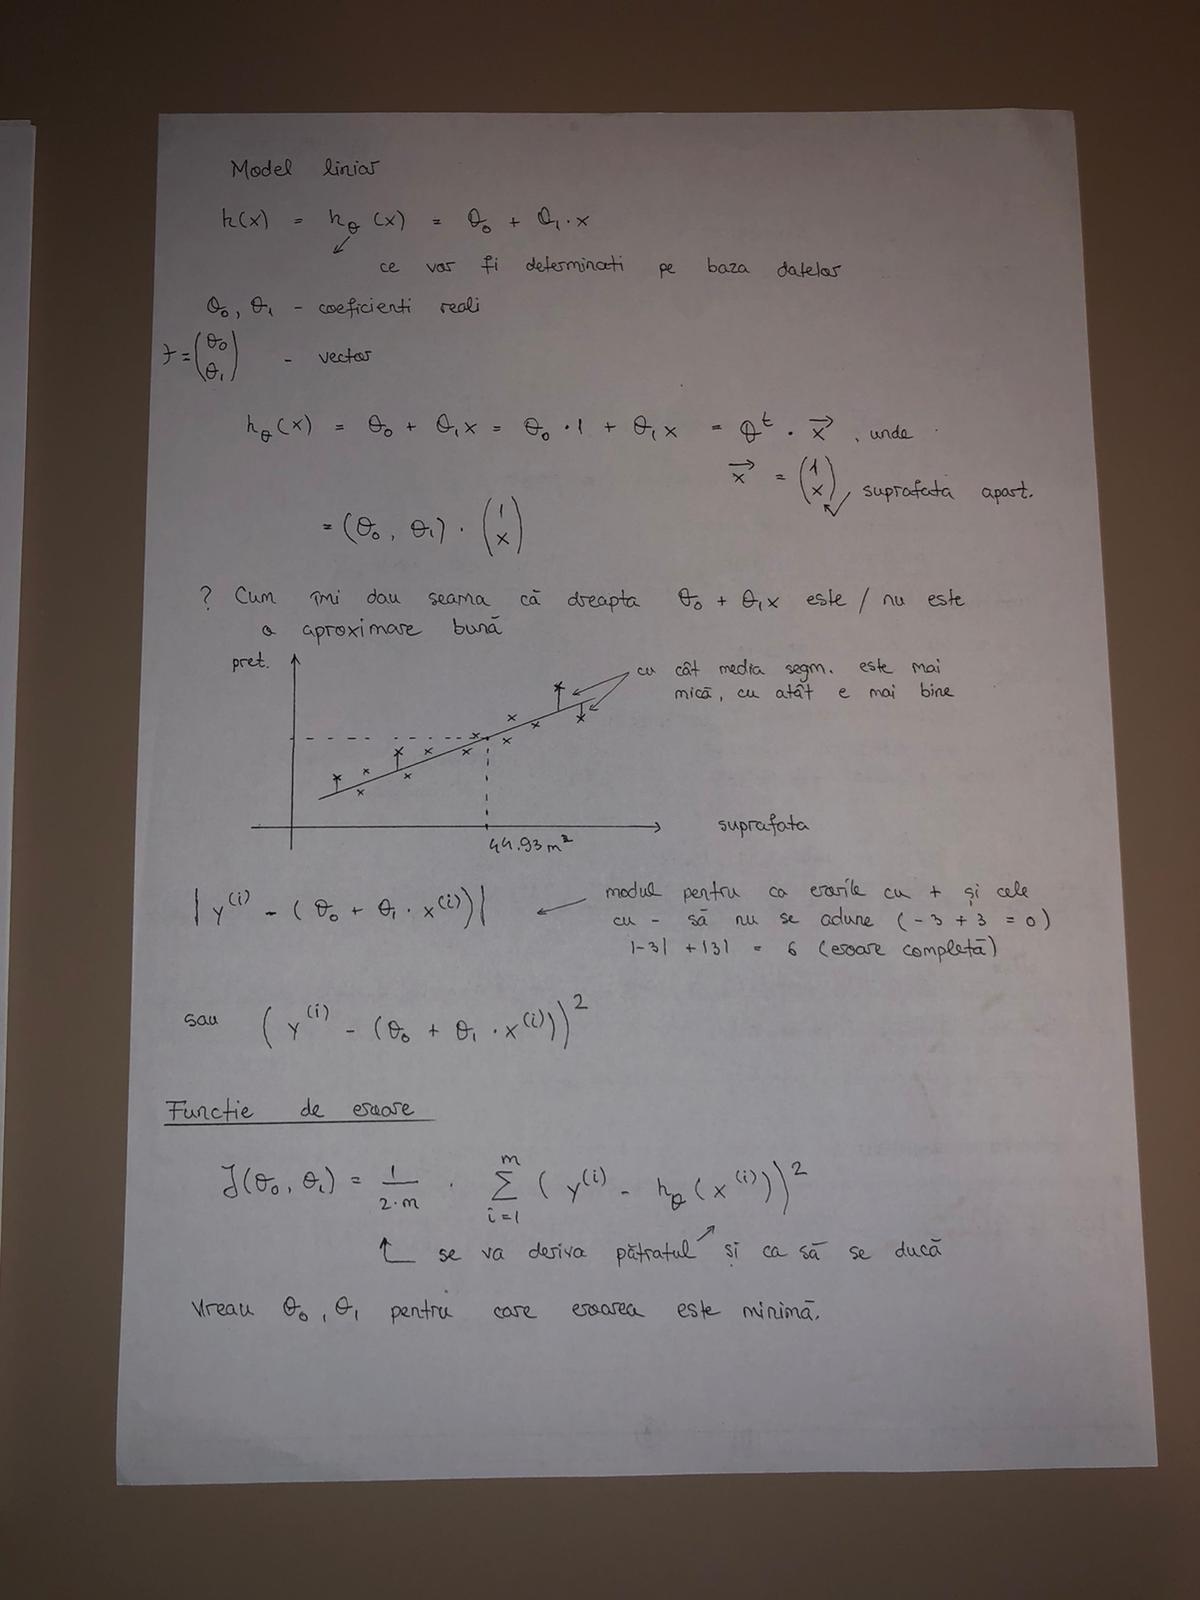 Model liniar
h(x) = h_θ (x) = θ₀ + θ₁ · x
ce vor fi determinati pe baza datelor
θ₀, θ₁ - coeficienti reali
t = (θ₀ θ₁) - vector
h_θ(x) = θ₀ + θ₁x = θ₀ · 1 + θ₁x = θ^t · x⃗ , unde
x⃗ = (1 x) suprafata apart.
= (θ₀, θ₁) · (1 x)
? Cum îmi dau seama că dreapta θ₀ + θ₁x este / nu este
o aproximare bună
pret.
cu cât media segm. este mai
mică, cu atât e mai bine
44.93 m²
suprafata
| y^(i) - (θ₀ + θ₁ · x^(i)) |
modul pentru ca erorile cu + și cele
cu - să nu se adune (-3 + 3 = 0)
|-3| + |3| = 6 (eroare completă)
sau (y^(i) - (θ₀ + θ₁ · x^(i)))²
Functie de eroare
J(θ₀, θ₁) = 1/(2·m) · Σ_{i=1}^{m} (y^(i) - h_θ(x^(i)))²
se va deriva pătratul și ca să se ducă
Vreau θ₀, θ₁ pentru care eroarea este minimă.